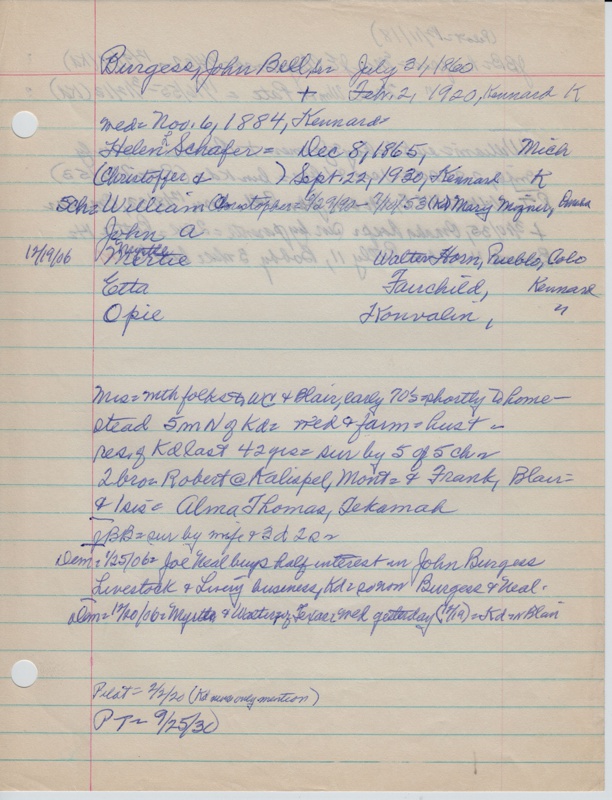 Burgess, John Bell Sr = July 31, 1860
+ Feb. 2, 1920, Kennard K
med = Nov. 6, 1884, Kennard =
Helen Schafer = Dec 8, 1865, Mich
(Christoffer & ) Sept. 22, 1930, Kennard K
5ch = William Christopher = 9/29/ - 9/10/53 (Kd) Mary Mogner, Omaha
John A
12/19/06 Myrtle Walter Horn, Pueblo, Colo
Etta Fairchild, Kennard
Opie Konvalin, "
Mrs = mth folks to WC & Blair, early 70's = shortly to home-
stead 5 m N of Kd = med & farm = hust =
res. of Kd last 42 yrs = sur by 5 of 5 ch =
2 bro = Robert @ Kalispel, Mont = & Frank, Blair =
& 1 sis = Alma Thomas, Tekamah
JBB = sur by wife & 3d 2s =
Dem = 1/25/06 = Joe Neal buys half interest in John Burgess
Livestock & Livery business, Kd = so now Burgess & Neal.
Dem = 12/20/06 = Myrtle & Walter, Texas, med yesterday (12/19) = Kd = in Blair
Pilot = 2/2/20 (Kd news only mention)
PT = 9/25/30